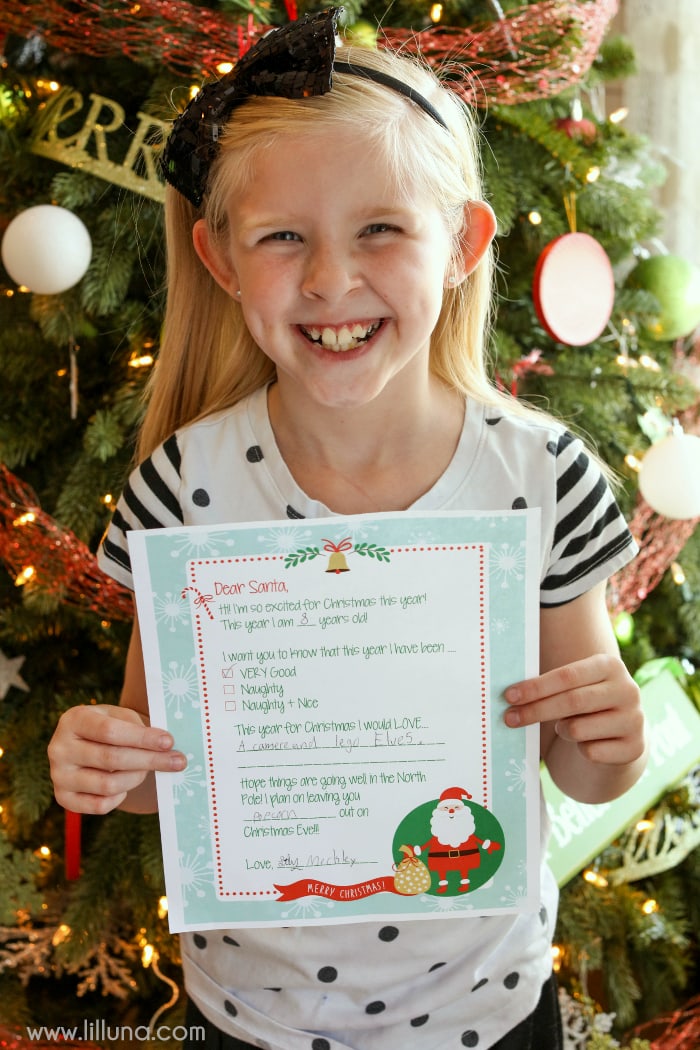 ERRY
Dear Santa,
Hi! I'm so excited for Christmas this year!
This year I am 8 years old!
I want you to know that this year I have been ....
VERY Good
Naughty
Naughty + Nice
This year for Christmas I would LOVE...
A camere and lego Elves.
Hope things are going well in the North
Pole! I plan on leaving you
out on
Christmas Eve!!!
Love,
MERRY CHRISTMAS!
www.lilluna.com